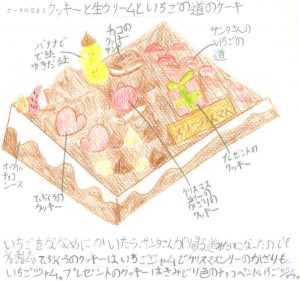 ケーキのなまえ クッキーと生クリームといちごの道のケーキ
バナナで
できた
ゆきだるま
チョコの
クッキー
サンド
サンタさんの
いちごの
道
ホワイト
チョコ
ソース
てぶくろの
クッキー
クリスマス
ツリーの
かざりの
クッキー
プレゼントの
クッキー
いちごをななめにおいたら、サンタさんが帰る
てぶくろのクッキーはいちごジャムでクリスマスツリーのかざりも
いちごジャム。プレゼントのクッキーはきみどり色のチョコペンといちごジャム。